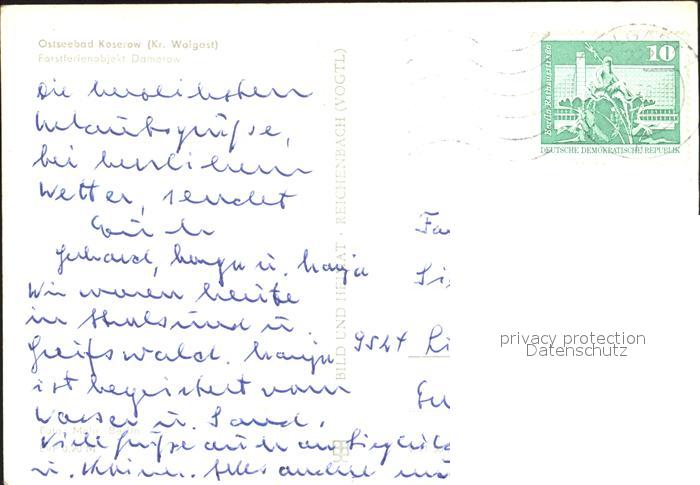 Ostseebad Koserow (Kr. Wolgast)
Forstferienobjekt Damerow
Die herzlichsten
Urlaubsgrüße,
bei herrlichem
Wetter, sendet
Euch
Gerhard, u. Manja
Wir waren heute
in Stralsund u.
Greifswald. Manja
ist begeistert vom
Wasser u. Sand.
Viele Grüße auch an
u. Alles andere
BILD UND HEIMAT · REICHENBACH (VOGTL)
10
Berlin Rathausstraße
DEUTSCHE DEMOKRATISCHE REPUBLIK
Fa
9524
privacy protection
Datenschutz